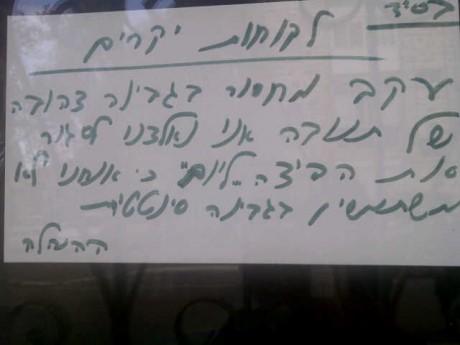 בס״ד
לקוחות יקרים
עקב מחסור בגבינה צהובה
של תנובה אני נאלצנו לסגור
את הפיצה "ליום" כי אנחנו לא
משתמשין בגבינה סינטטית
ההנהלה